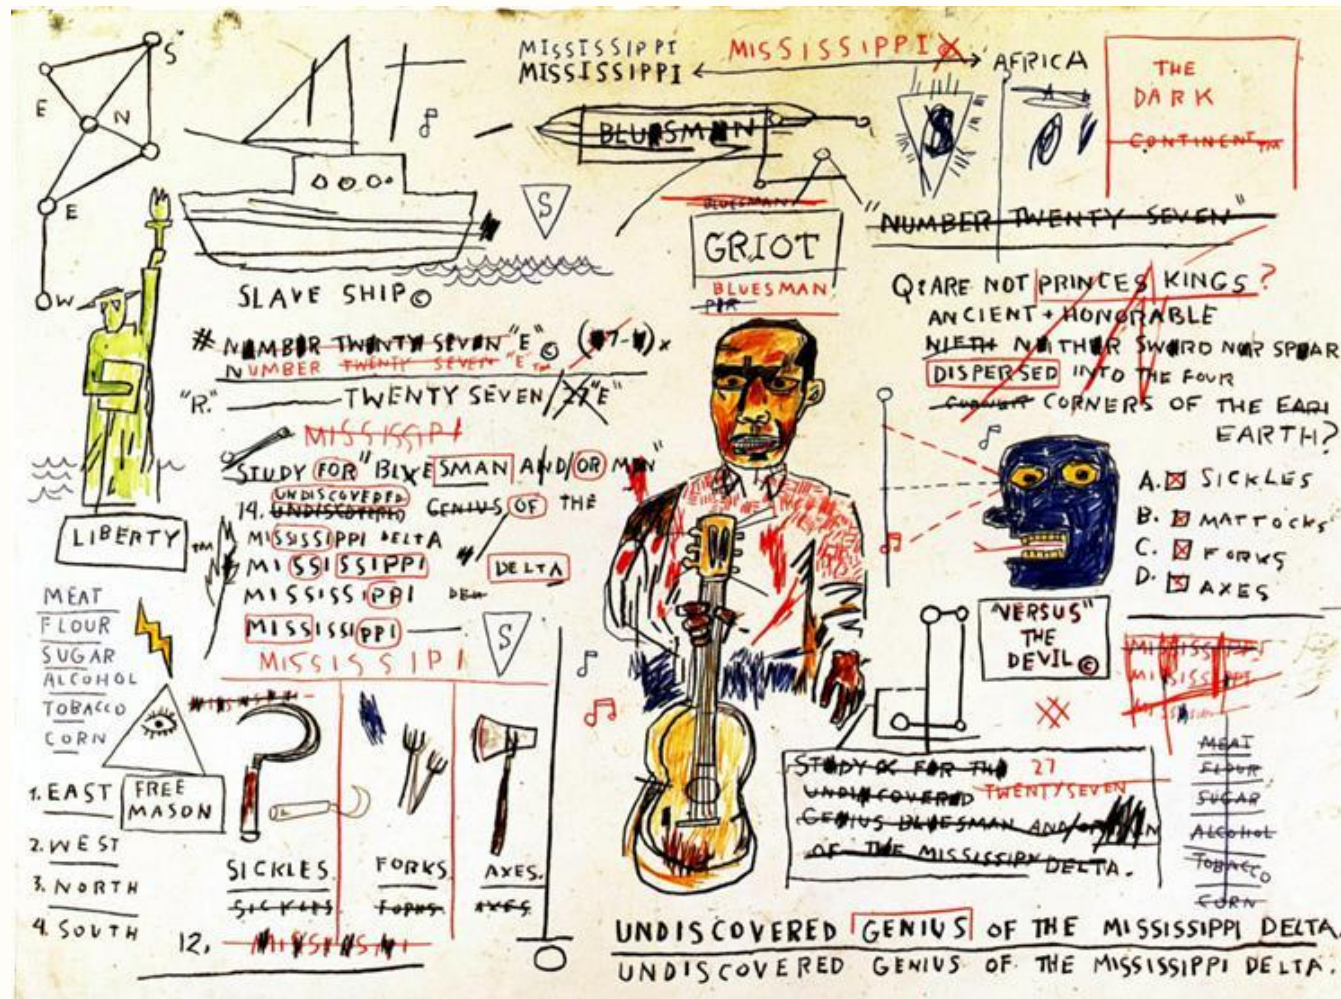 S
E
N
E
W
MISSISSIPPI
MISSISSIPPI
MISSISSIPPI
AFRICA
THE
DARK
CONTINENT™
BLUESMAN
S
S
BLUESMAN
GRIOT
BLUESMAN
"NUMBER TWENTY SEVEN"
SLAVE SHIP ©
# NUMBER TWENTY SEVEN "E" ©
NUMBER TWENTY SEVEN "E"™
"R." TWENTY SEVEN / 27 "E"
MISSISSIPI
STUDY FOR "BLUESMAN AND/OR MEN"
UNDISCOVERED
14. UNDISCOVERED GENIUS OF THE
MISSISSIPPI DELTA
MISSISSIPPI
DELTA
MISSISSIPPI
MISSISSIPPI
MISSISSIPI
S
LIBERTY ™
MEAT
FLOUR
SUGAR
ALCOHOL
TOBACCO
CORN
FREE
MASON
1. EAST
2. WEST
3. NORTH
4. SOUTH
SICKLES.
SICKLES
FORKS
FORKS.
AXES.
AXES.
12.
Q: ARE NOT PRINCES KINGS?
ANCIENT + HONORABLE
NIETH NEITHER SWORD NOR SPEAR
DISPERSED INTO THE FOUR
CORNER CORNERS OF THE EARI
EARTH?
A. SICKLES
B. MATTOCKS
C. FORKS
D. AXES
"VERSUS"
THE
DEVIL ©
MISSISSIPPI
MISSISSIPPI
MEAT
FLOUR
SUGAR
ALCOHOL
TOBACCO
CORN
STUDY FOR THE 27
UNDISCOVERED TWENTY SEVEN
GENIUS BLUESMAN AND/OR MEN
OF THE MISSISSIPPI DELTA.
UNDISCOVERED GENIUS OF THE MISSISSIPPI DELTA.
UNDISCOVERED GENIUS OF THE MISSISSIPPI DELTA.